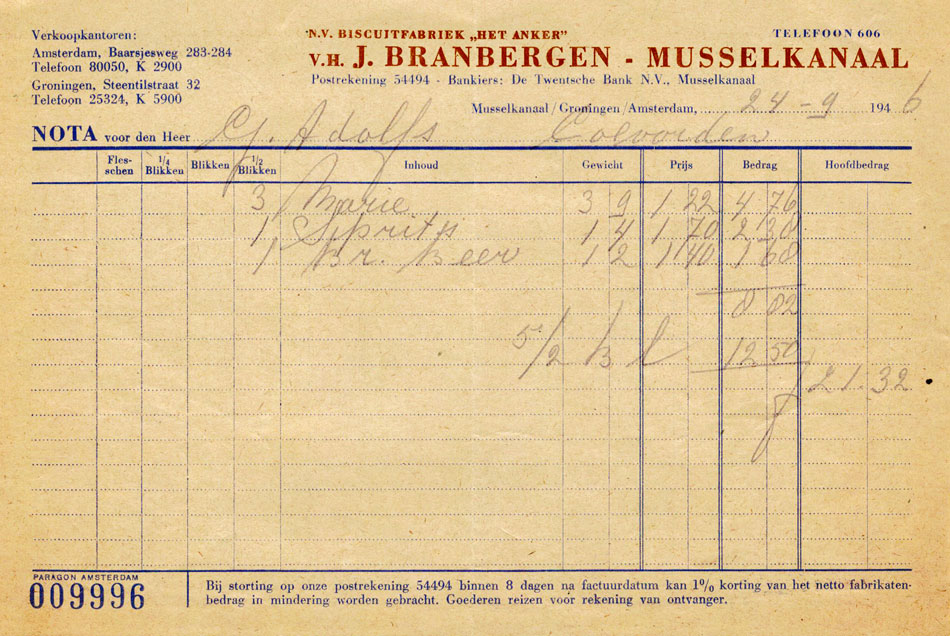 Verkoopkantoren:
Amsterdam, Baarsjesweg 283-284
Telefoon 80050, K 2900
Groningen, Steentilstraat 32
Telefoon 25324, K 5900
N.V. BISCUITFABRIEK „HET ANKER”
TELEFOON 606
V.H. J. BRANBERGEN - MUSSELKANAAL
Postrekening 54494 - Bankiers: De Twentsche Bank N.V., Musselkanaal
Musselkanaal/Groningen/Amsterdam, 24-9 1946
NOTA voor den Heer Adolfs Coevorden
Fles-schen 1/4 Blikken Blikken 1/2 Blikken Inhoud Gewicht Prijs Bedrag Hoofdbedrag
3 Marie 3 9 1 22 4 76
1 Sprits 1 4 1 70 2 38
1 Br. Beer 1 2 1 40 1 68
8 82
5/2 bl 12 50
21.32
PARAGON AMSTERDAM
009996
Bij storting op onze postrekening 54494 binnen 8 dagen na factuurdatum kan 1% korting van het netto fabrikaten-
bedrag in mindering worden gebracht. Goederen reizen voor rekening van ontvanger.